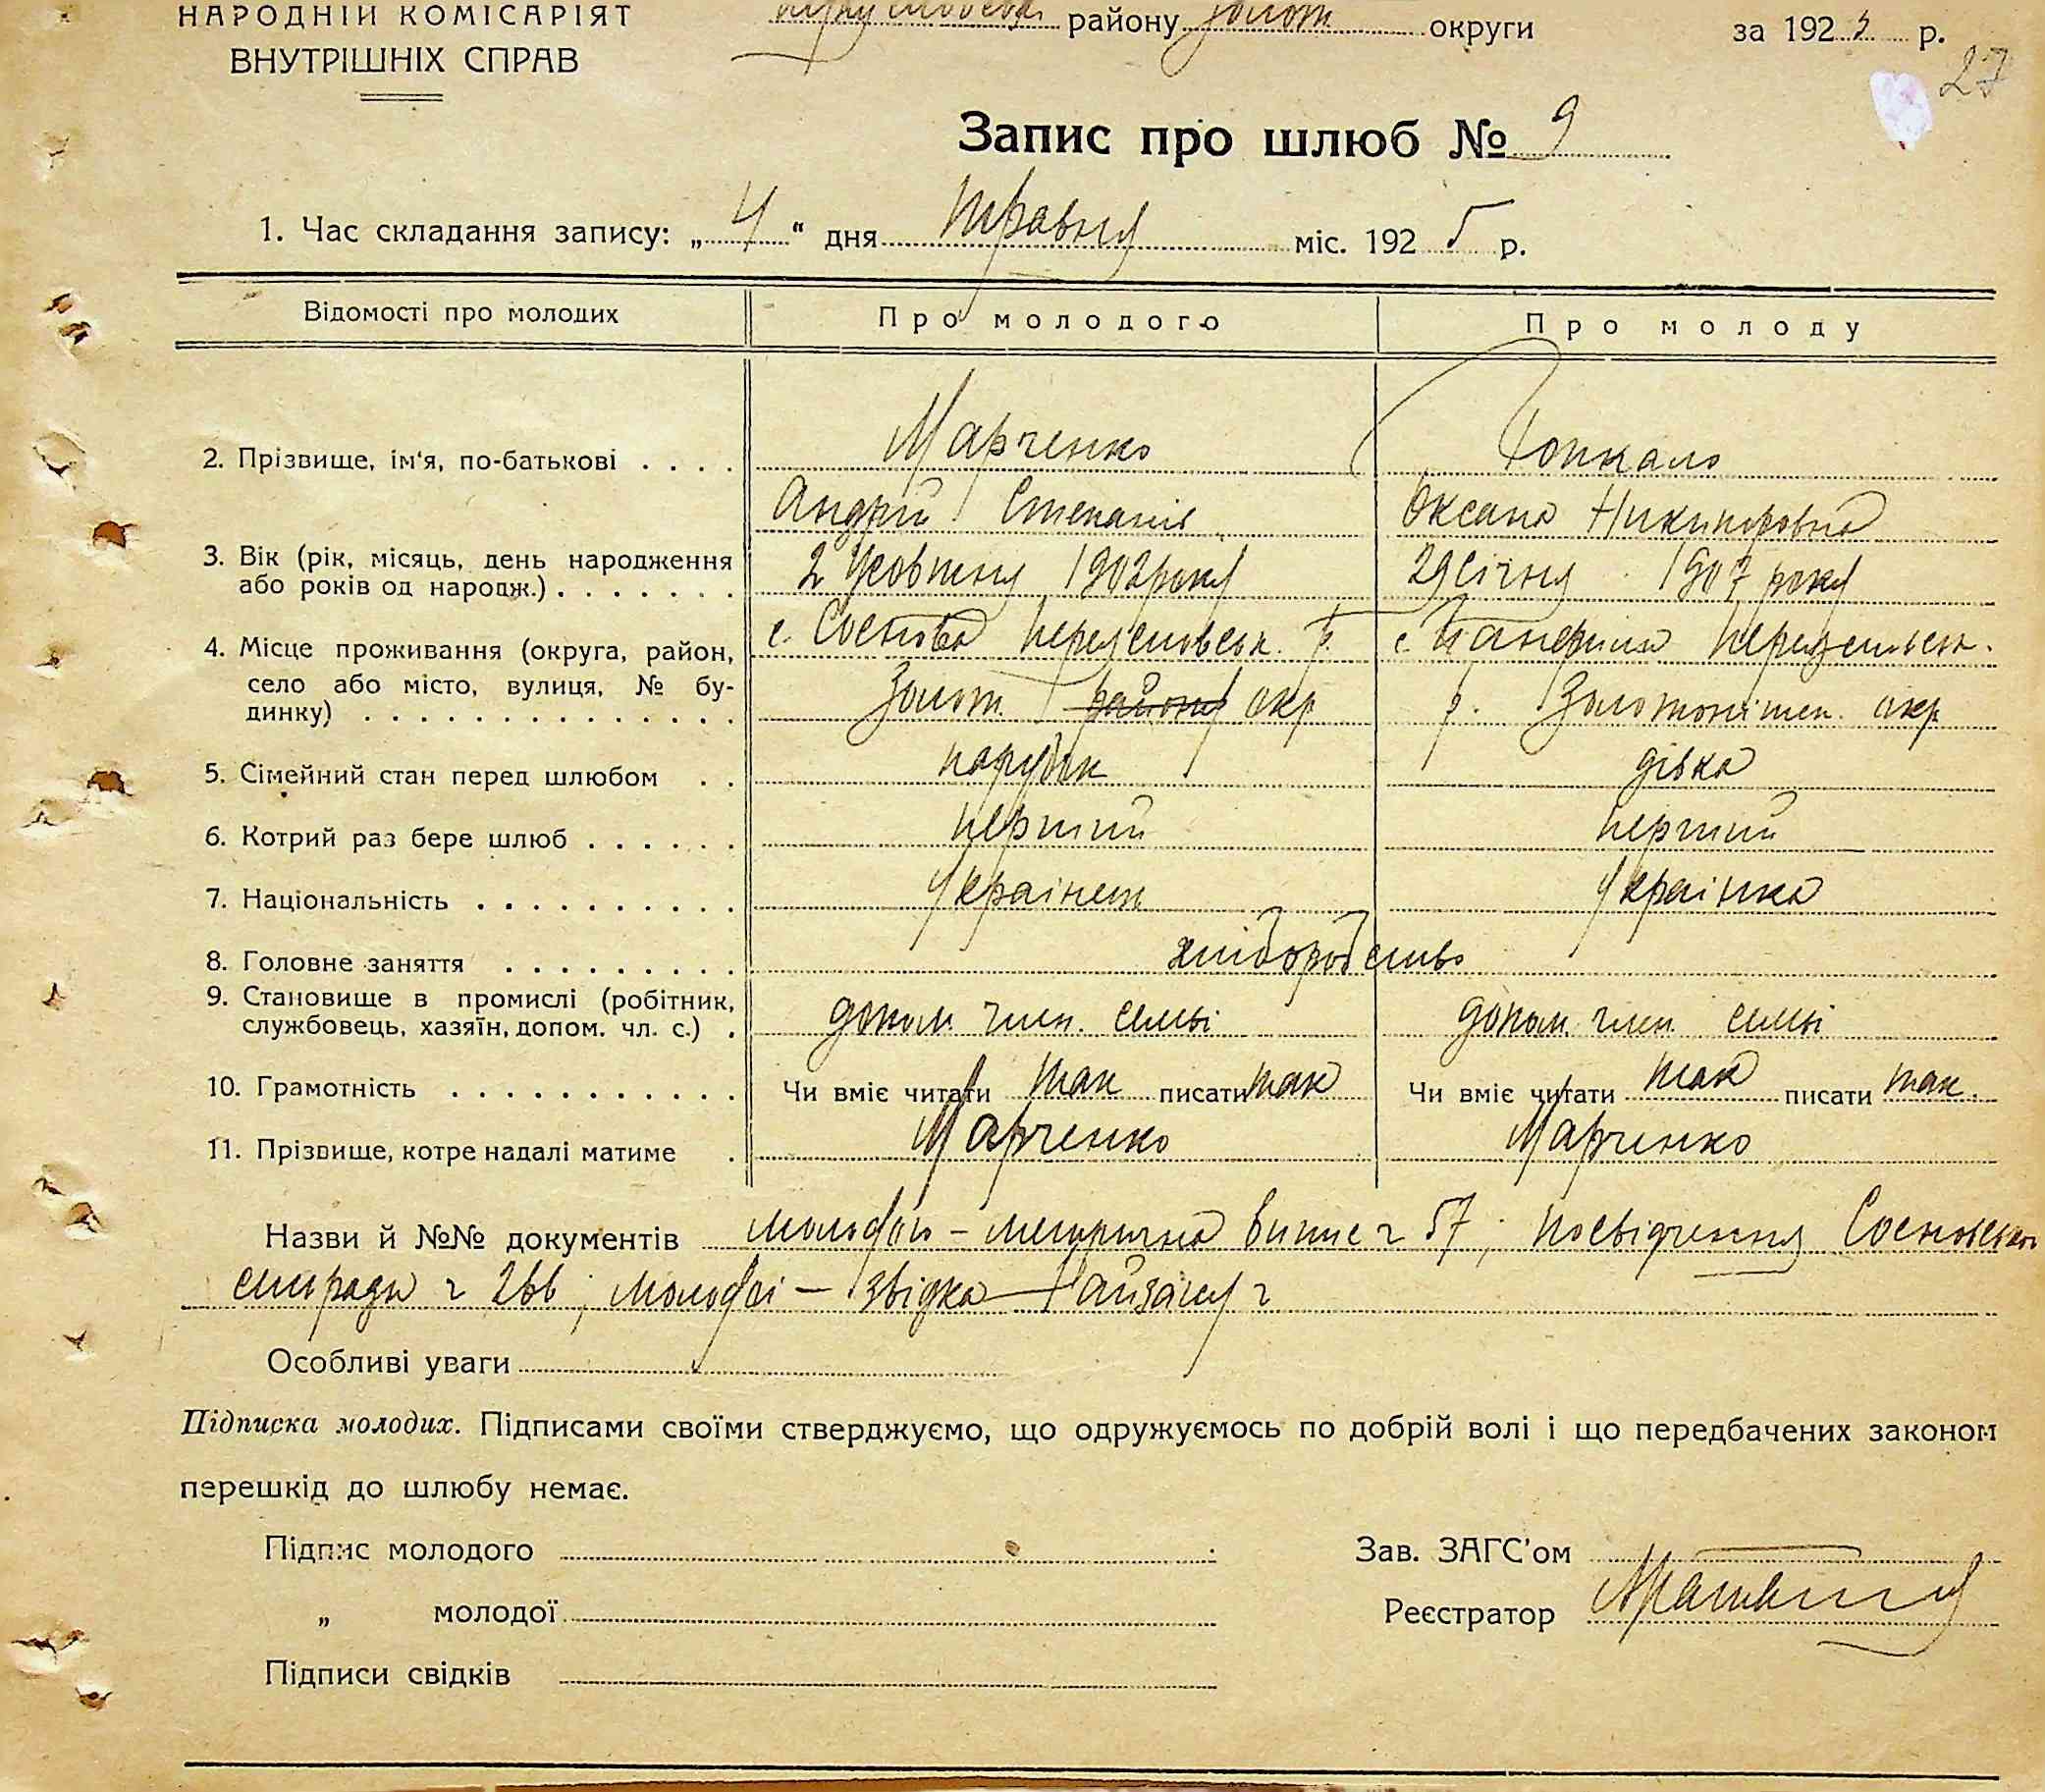 НАРОДНІЙ КОМІСАРІЯТ
району Золот округи за 1925 р.
ВНУТРІШНІХ СПРАВ
27
Запис про шлюб № 9
1. Час складання запису: „4“ дня травня міс. 1925 р.
Відомості про молодих Про молодого Про молоду
2. Прізвище, ім'я, по-батькові . . . . Марченко Гопкало
Андрій Степанів Оксана Никипоровна
3. Вік (рік, місяць, день народження
або років од народж.) . . . . . . . 2 Жовтня 1902 року 29 Січня 1907 року
4. Місце проживання (округа, район, с. Соснова Переяславськ. р. с. Панфили Переяславськ.
село або місто, вулиця, № бу-
динку) . . . . . . . . . . . . . . . Золот району окр р. Золотоніськ. окр
5. Сімейний стан перед шлюбом . . парубок дівка
6. Котрий раз бере шлюб . . . . . . перший перший
7. Національність . . . . . . . . . . Українець Українка
8. Головне заняття . . . . . . . . . хліборобство
9. Становище в промислі (робітник,
службовець, хазяїн, допом. чл. с.) . допом. член. семьї допом. член. семьї
10. Грамотність . . . . . . . . . . . Чи вміє читати так писати так Чи вміє читати так писати так.
11. Прізвище, котре надалі матиме . Марченко Марченко
Назви й №№ документів молодого – метрична випис ч 57; посвідчення Сосновської
сільради ч 266; молодої – звідка ч
Особливі уваги
Підписка молодих. Підписами своїми стверджуємо, що одружуємось по добрій волі і що передбачених законом
перешкід до шлюбу немає.
Підпис молодого Зав. ЗАГС'ом
„ молодої Реєстратор
Підписи свідків